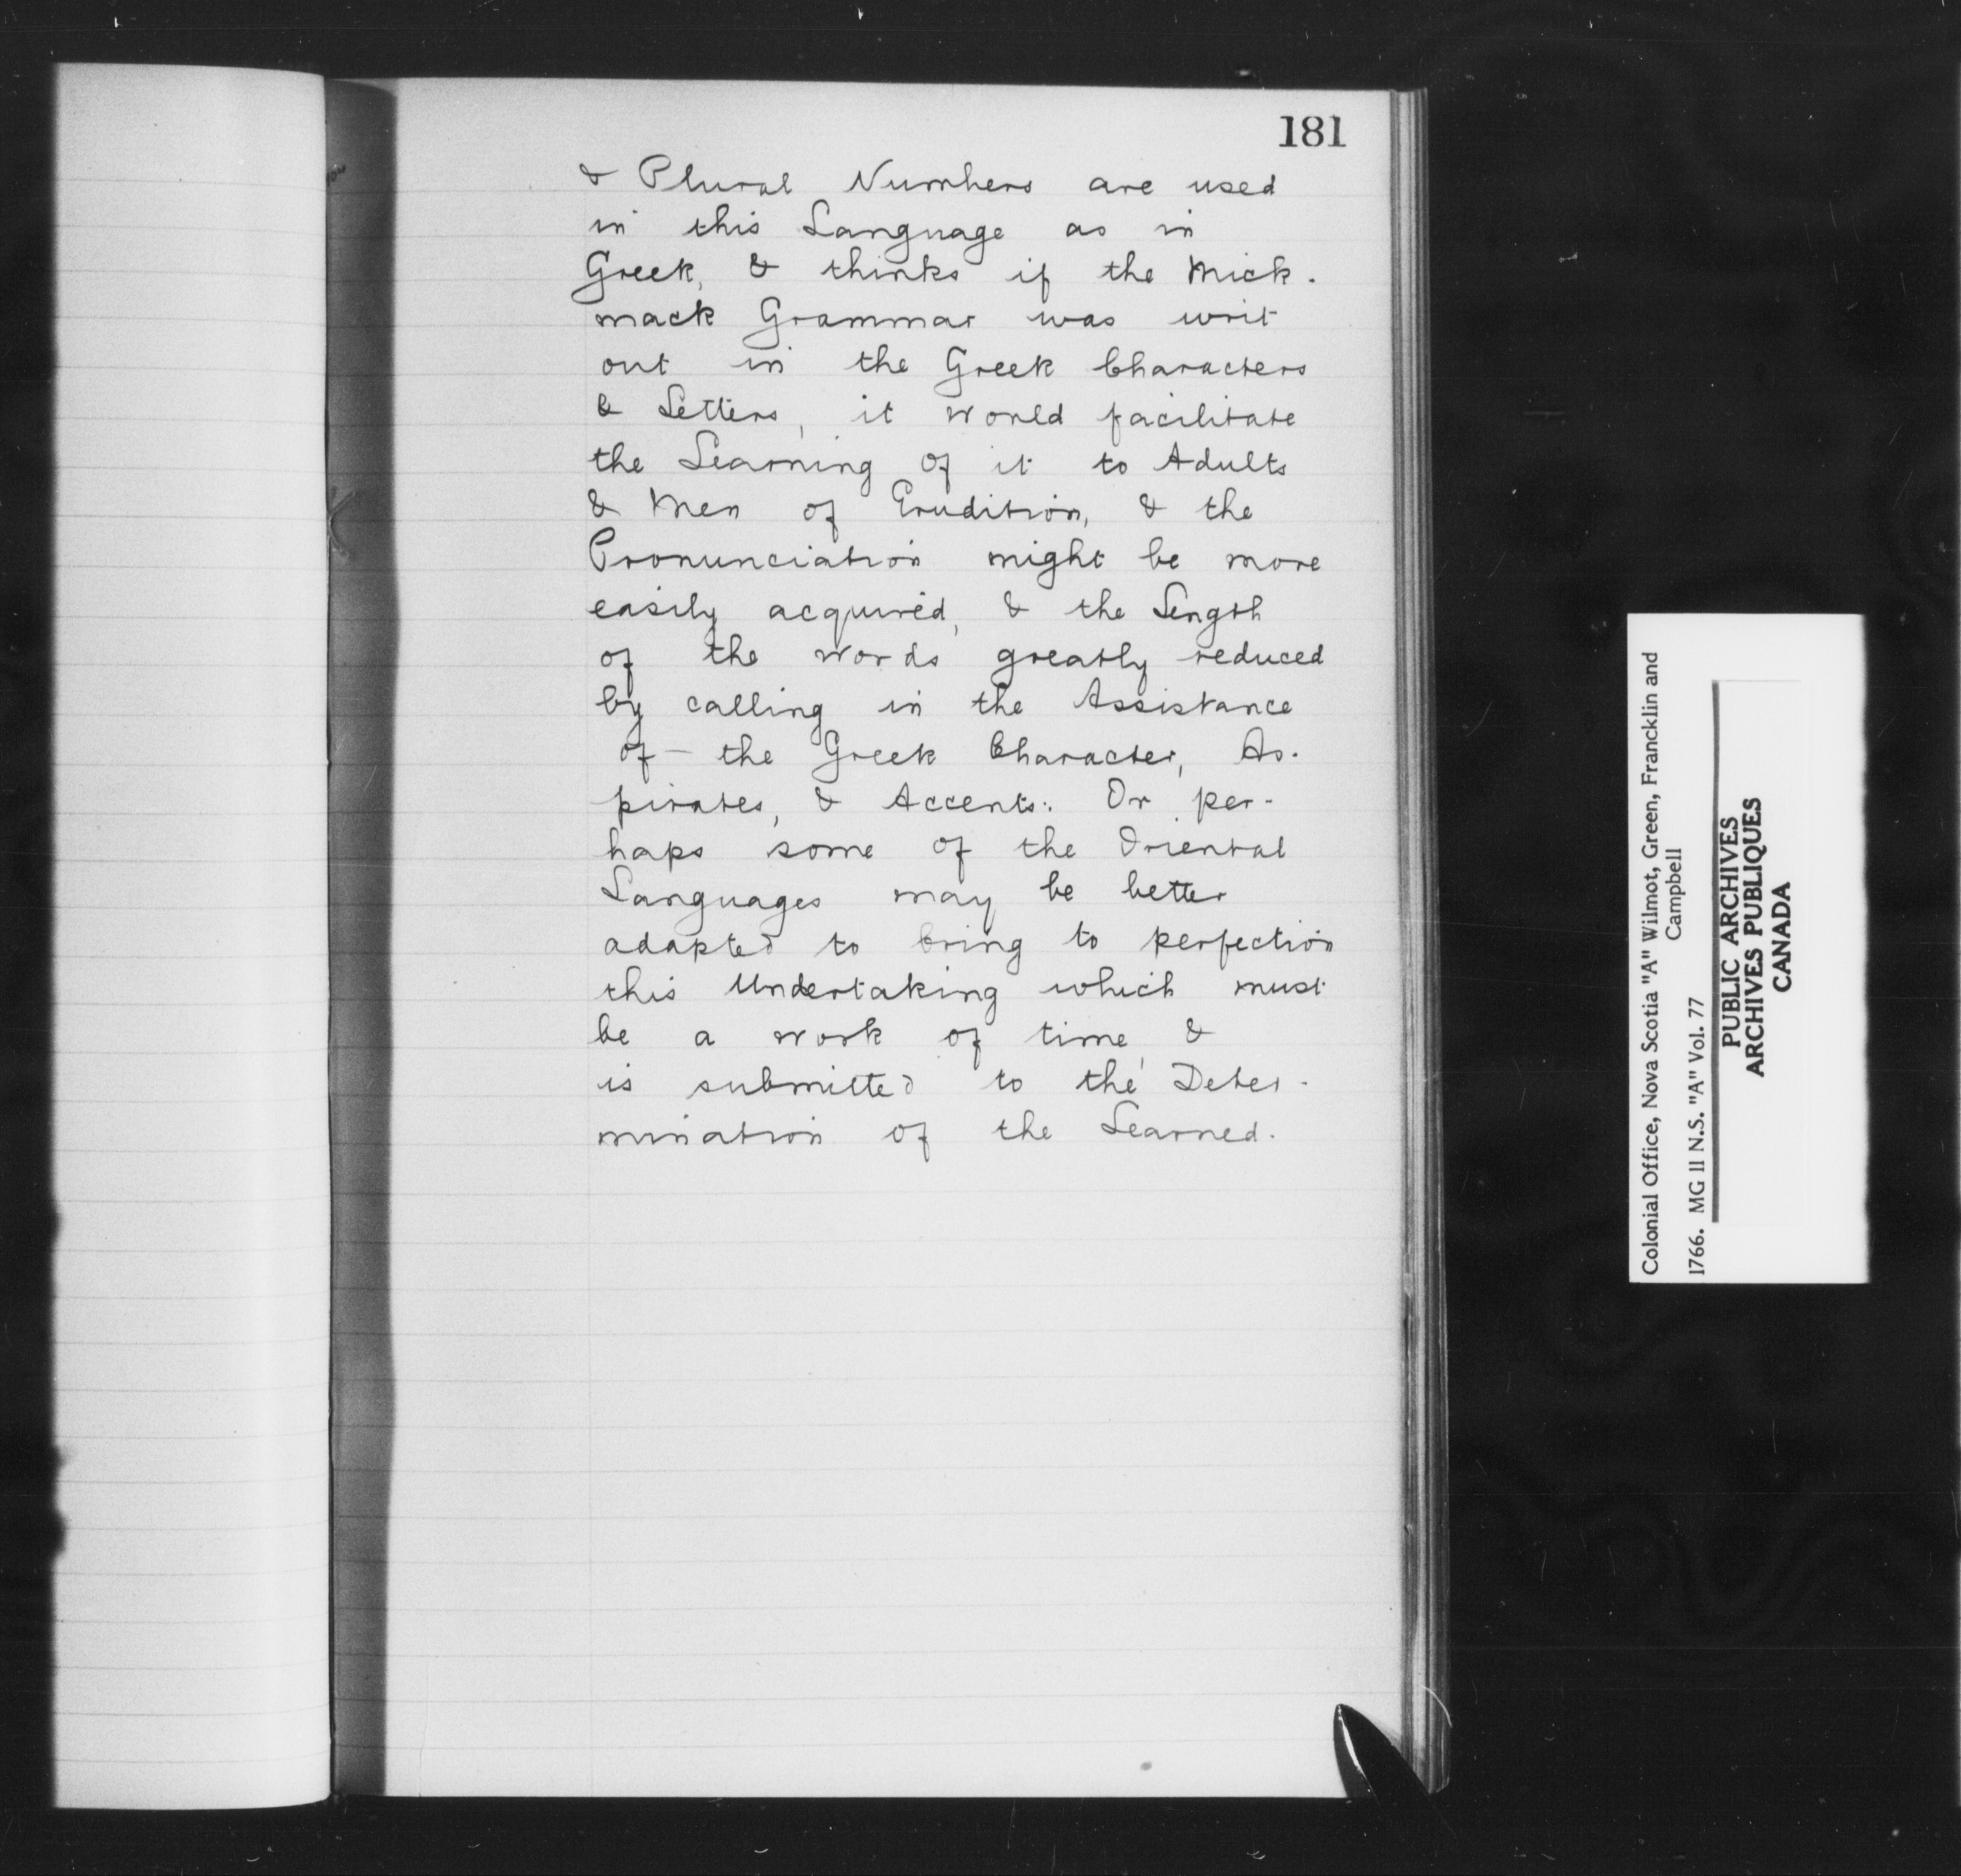 181
& Plural Numbers are used
in this Language as in
Greek, & thinks if the Mick-
mack Grammar was writ
out in the Greek Characters
& Letters, it would facilitate
the Learning of it to Adults
& Men of Erudition, & the
Pronunciation might be more
easily acquired, & the Length
of the words greatly reduced
by calling in the Assistance
of the Greek Character, As-
pirates, & Accents: Or per-
haps some of the Oriental
Languages may be better
adapted to bring to perfection
this Undertaking which must
be a work of time, &
is submitted to the Deter-
mination of the Learned.
Colonial Office, Nova Scotia "A" Wilmot, Green, Francklin and
Campbell
1766. MG 11 N.S. "A" Vol. 77
PUBLIC ARCHIVES
ARCHIVES PUBLIQUES
CANADA